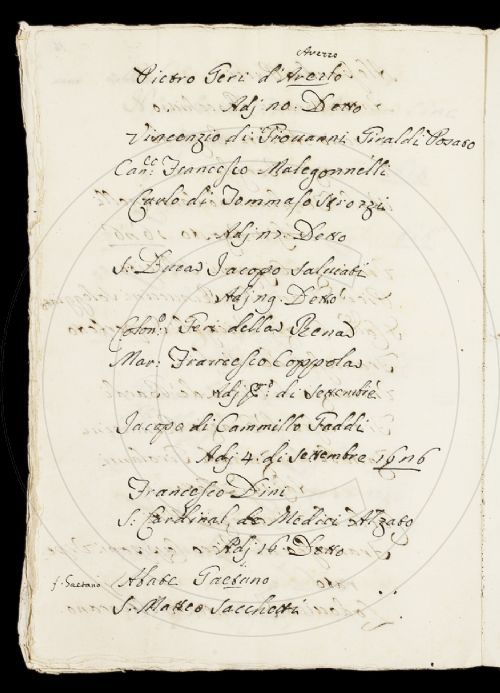 Averzo
Pietro Geri d'Averlo
Adj no: Detto
Vincenzio di Giovanni Giraldi Posato
Can:ce Francesco Malegonnelli
Carlo di Tommaso Strozzi
Adj Detto
S: Duca Jacopo Salviati
Adj Detto
Colon: Geri della Rena
Mar: Francesco Coppola
Adj P:o di Settembre
Jacopo di Cammillo Gaddi
Adj 4: di Settembre
Francesco Dini
S: Cardinal de Medici Alzato
Adj 16 Detto
f. Gaetano Abate Gaetano
S: Matteo Sacchetti